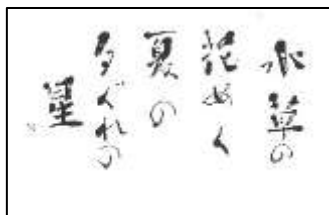 水草の
花めく
夏の
夕ぐれの
星